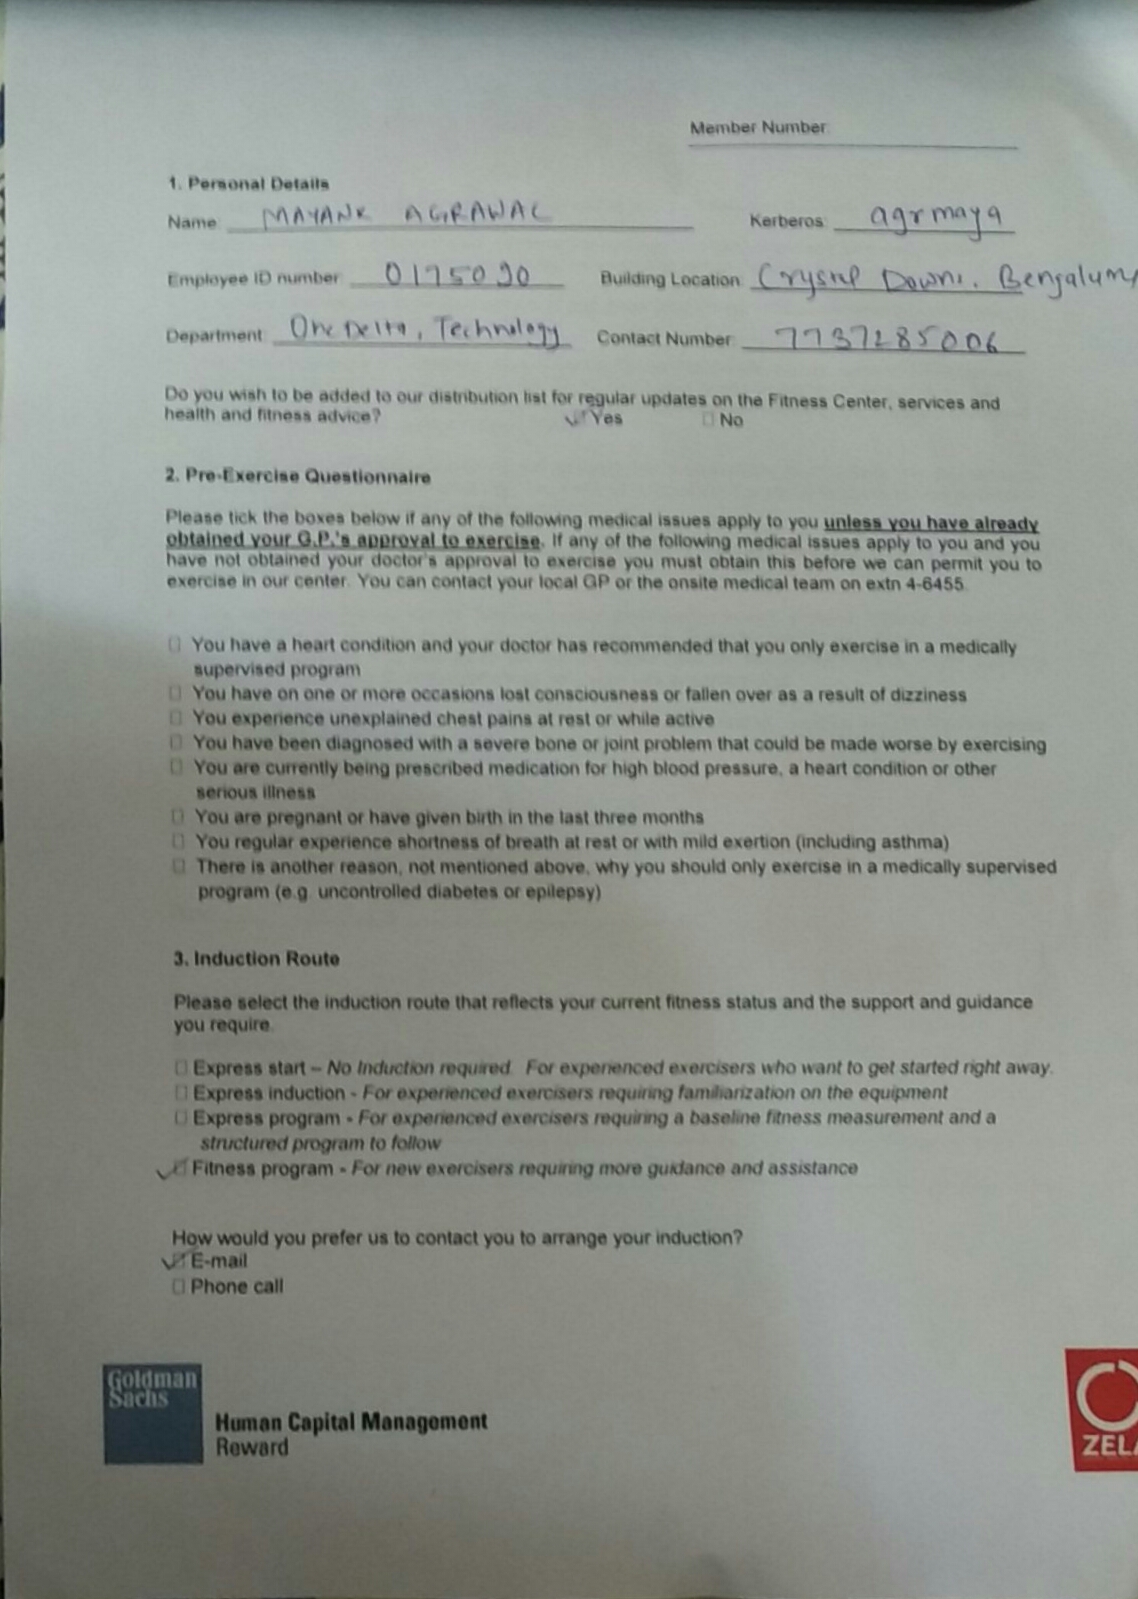 Member Number
1. Personal Details
Name: MAYANK AGRAWAL Kerberos: agrmaya
Employee ID number: 0175090 Building Location: Crystal Downs, Bengaluru
Department: One Delta, Technology Contact Number: 7737285006
Do you wish to be added to our distribution list for regular updates on the Fitness Center, services and
health and fitness advice? ☑ Yes ☐ No
2. Pre-Exercise Questionnaire
Please tick the boxes below if any of the following medical issues apply to you unless you have already
obtained your G.P.'s approval to exercise. If any of the following medical issues apply to you and you
have not obtained your doctor's approval to exercise you must obtain this before we can permit you to
exercise in our center. You can contact your local GP or the onsite medical team on extn 4-6455.
☐ You have a heart condition and your doctor has recommended that you only exercise in a medically
supervised program
☐ You have on one or more occasions lost consciousness or fallen over as a result of dizziness
☐ You experience unexplained chest pains at rest or while active
☐ You have been diagnosed with a severe bone or joint problem that could be made worse by exercising
☐ You are currently being prescribed medication for high blood pressure, a heart condition or other
serious illness
☐ You are pregnant or have given birth in the last three months
☐ You regular experience shortness of breath at rest or with mild exertion (including asthma)
☐ There is another reason, not mentioned above, why you should only exercise in a medically supervised
program (e.g. uncontrolled diabetes or epilepsy)
3. Induction Route
Please select the induction route that reflects your current fitness status and the support and guidance
you require.
☐ Express start – No Induction required. For experienced exercisers who want to get started right away.
☐ Express induction - For experienced exercisers requiring familiarization on the equipment
☐ Express program - For experienced exercisers requiring a baseline fitness measurement and a
structured program to follow
☑ Fitness program - For new exercisers requiring more guidance and assistance
How would you prefer us to contact you to arrange your induction?
☑ E-mail
☐ Phone call
Goldman
Sachs
Human Capital Management
Reward
ZELA